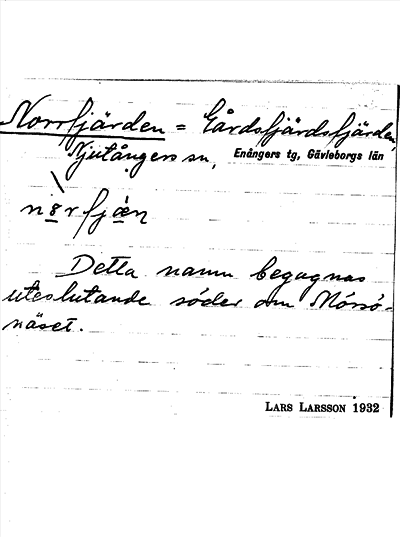 Norrfjärden = Gårdsfjärdsfjärden,
Njutångers sn, Enångers tg, Gävleborgs län
Detta namn begagnas
uteslutande söder om Mössö-
näset.
LARS LARSSON 1932